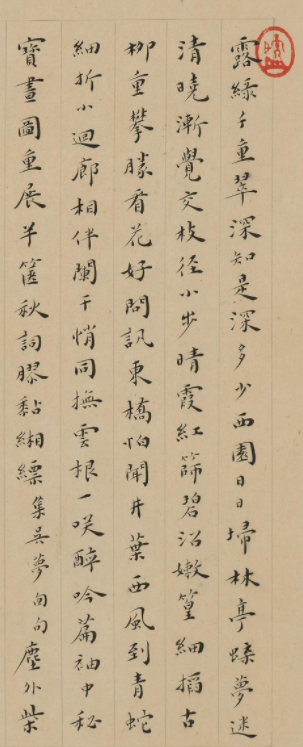 露綠千重翠深知是深多少西園日日埽林亭蜨夢迷
清曉漸覺交枝徑小步晴霞紅篩碧沼嫩篁細搯古
柳重攀勝看花好問訊東橋怕聞井葉西風到青蛇
細折小迴廊相伴闌干悄同撫雲根一咲醉吟篇袖中秘
寶畫圖重展半篋秋詞膠黏緗縹集吳夢窗句塵外柴